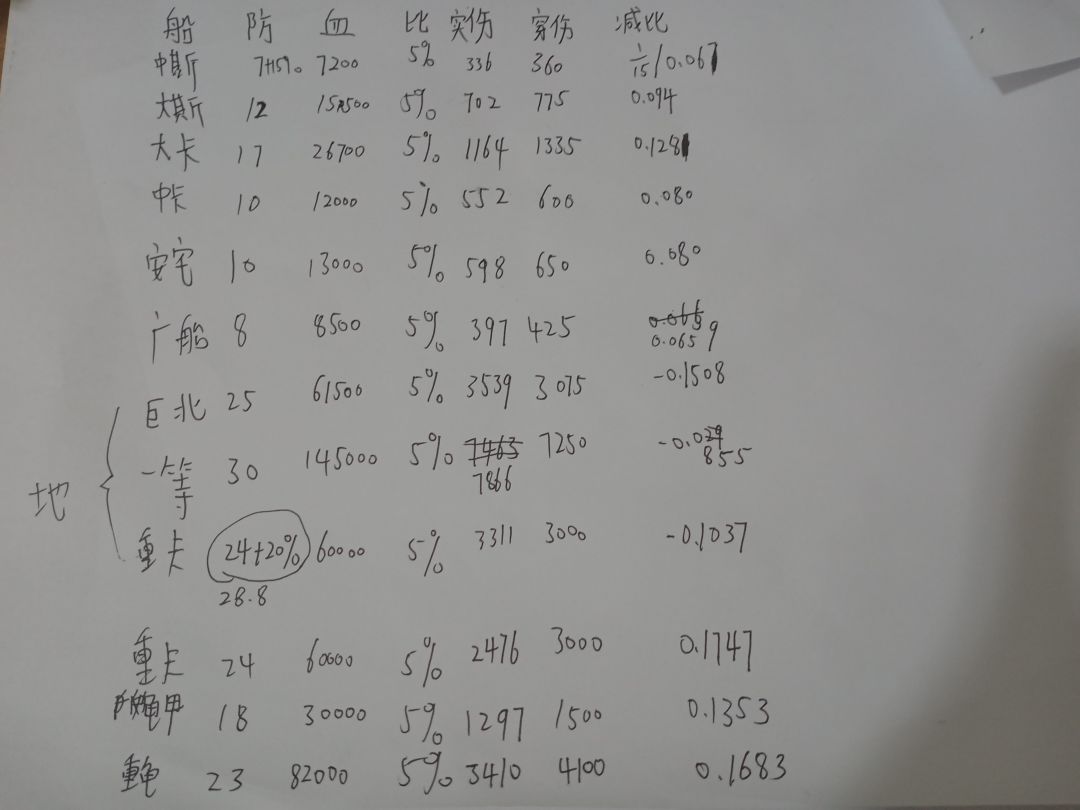 船 防 血 比 实伤 穿伤 减比
中斯 7+15% 7200 5% 336 360 1/15/0.067
大斯 12 15500 5% 702 775 0.094
大卡 17 26700 5% 1164 1335 0.1281
中卡 10 12000 5% 552 600 0.080
安宅 10 13000 5% 598 650 0.080
广船 8 8500 5% 397 425 0.0659
巨北 25 61500 5% 3539 3075 -0.1508
一等 30 145000 5% 7463 7250 -0.0
7866 855
地
重卡 24+20% 60000 5% 3311 3000 -0.1037
28.8
重卡 24 60000 5% 2476 3000 0.1747
龟甲 18 30000 5% 1297 1500 0.1353
重龟 23 82000 5% 3410 4100 0.1683